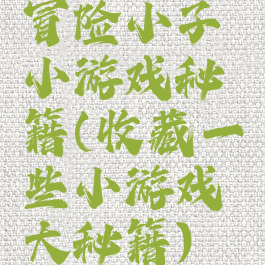 冒险小子
小游戏秘
籍(收藏一
些小游戏
大秘籍)